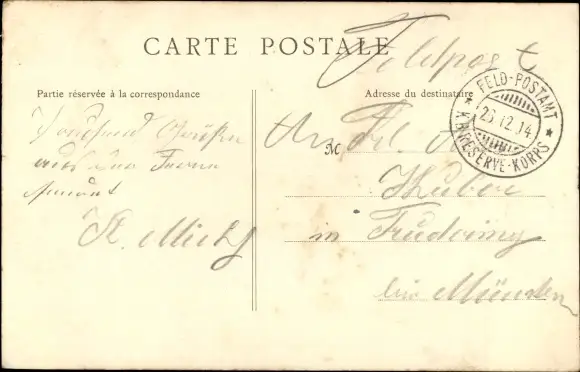 CARTE POSTALE
Feldpost
Partie réservée à la correspondance
Adresse du destinataire
FELD-POSTAMT
23.12.14
K.B. I RESERVE-KORPS
Tausend Grüße
aus der Ferne
sendet
An Frl. A.
M
Huber
in
bei München